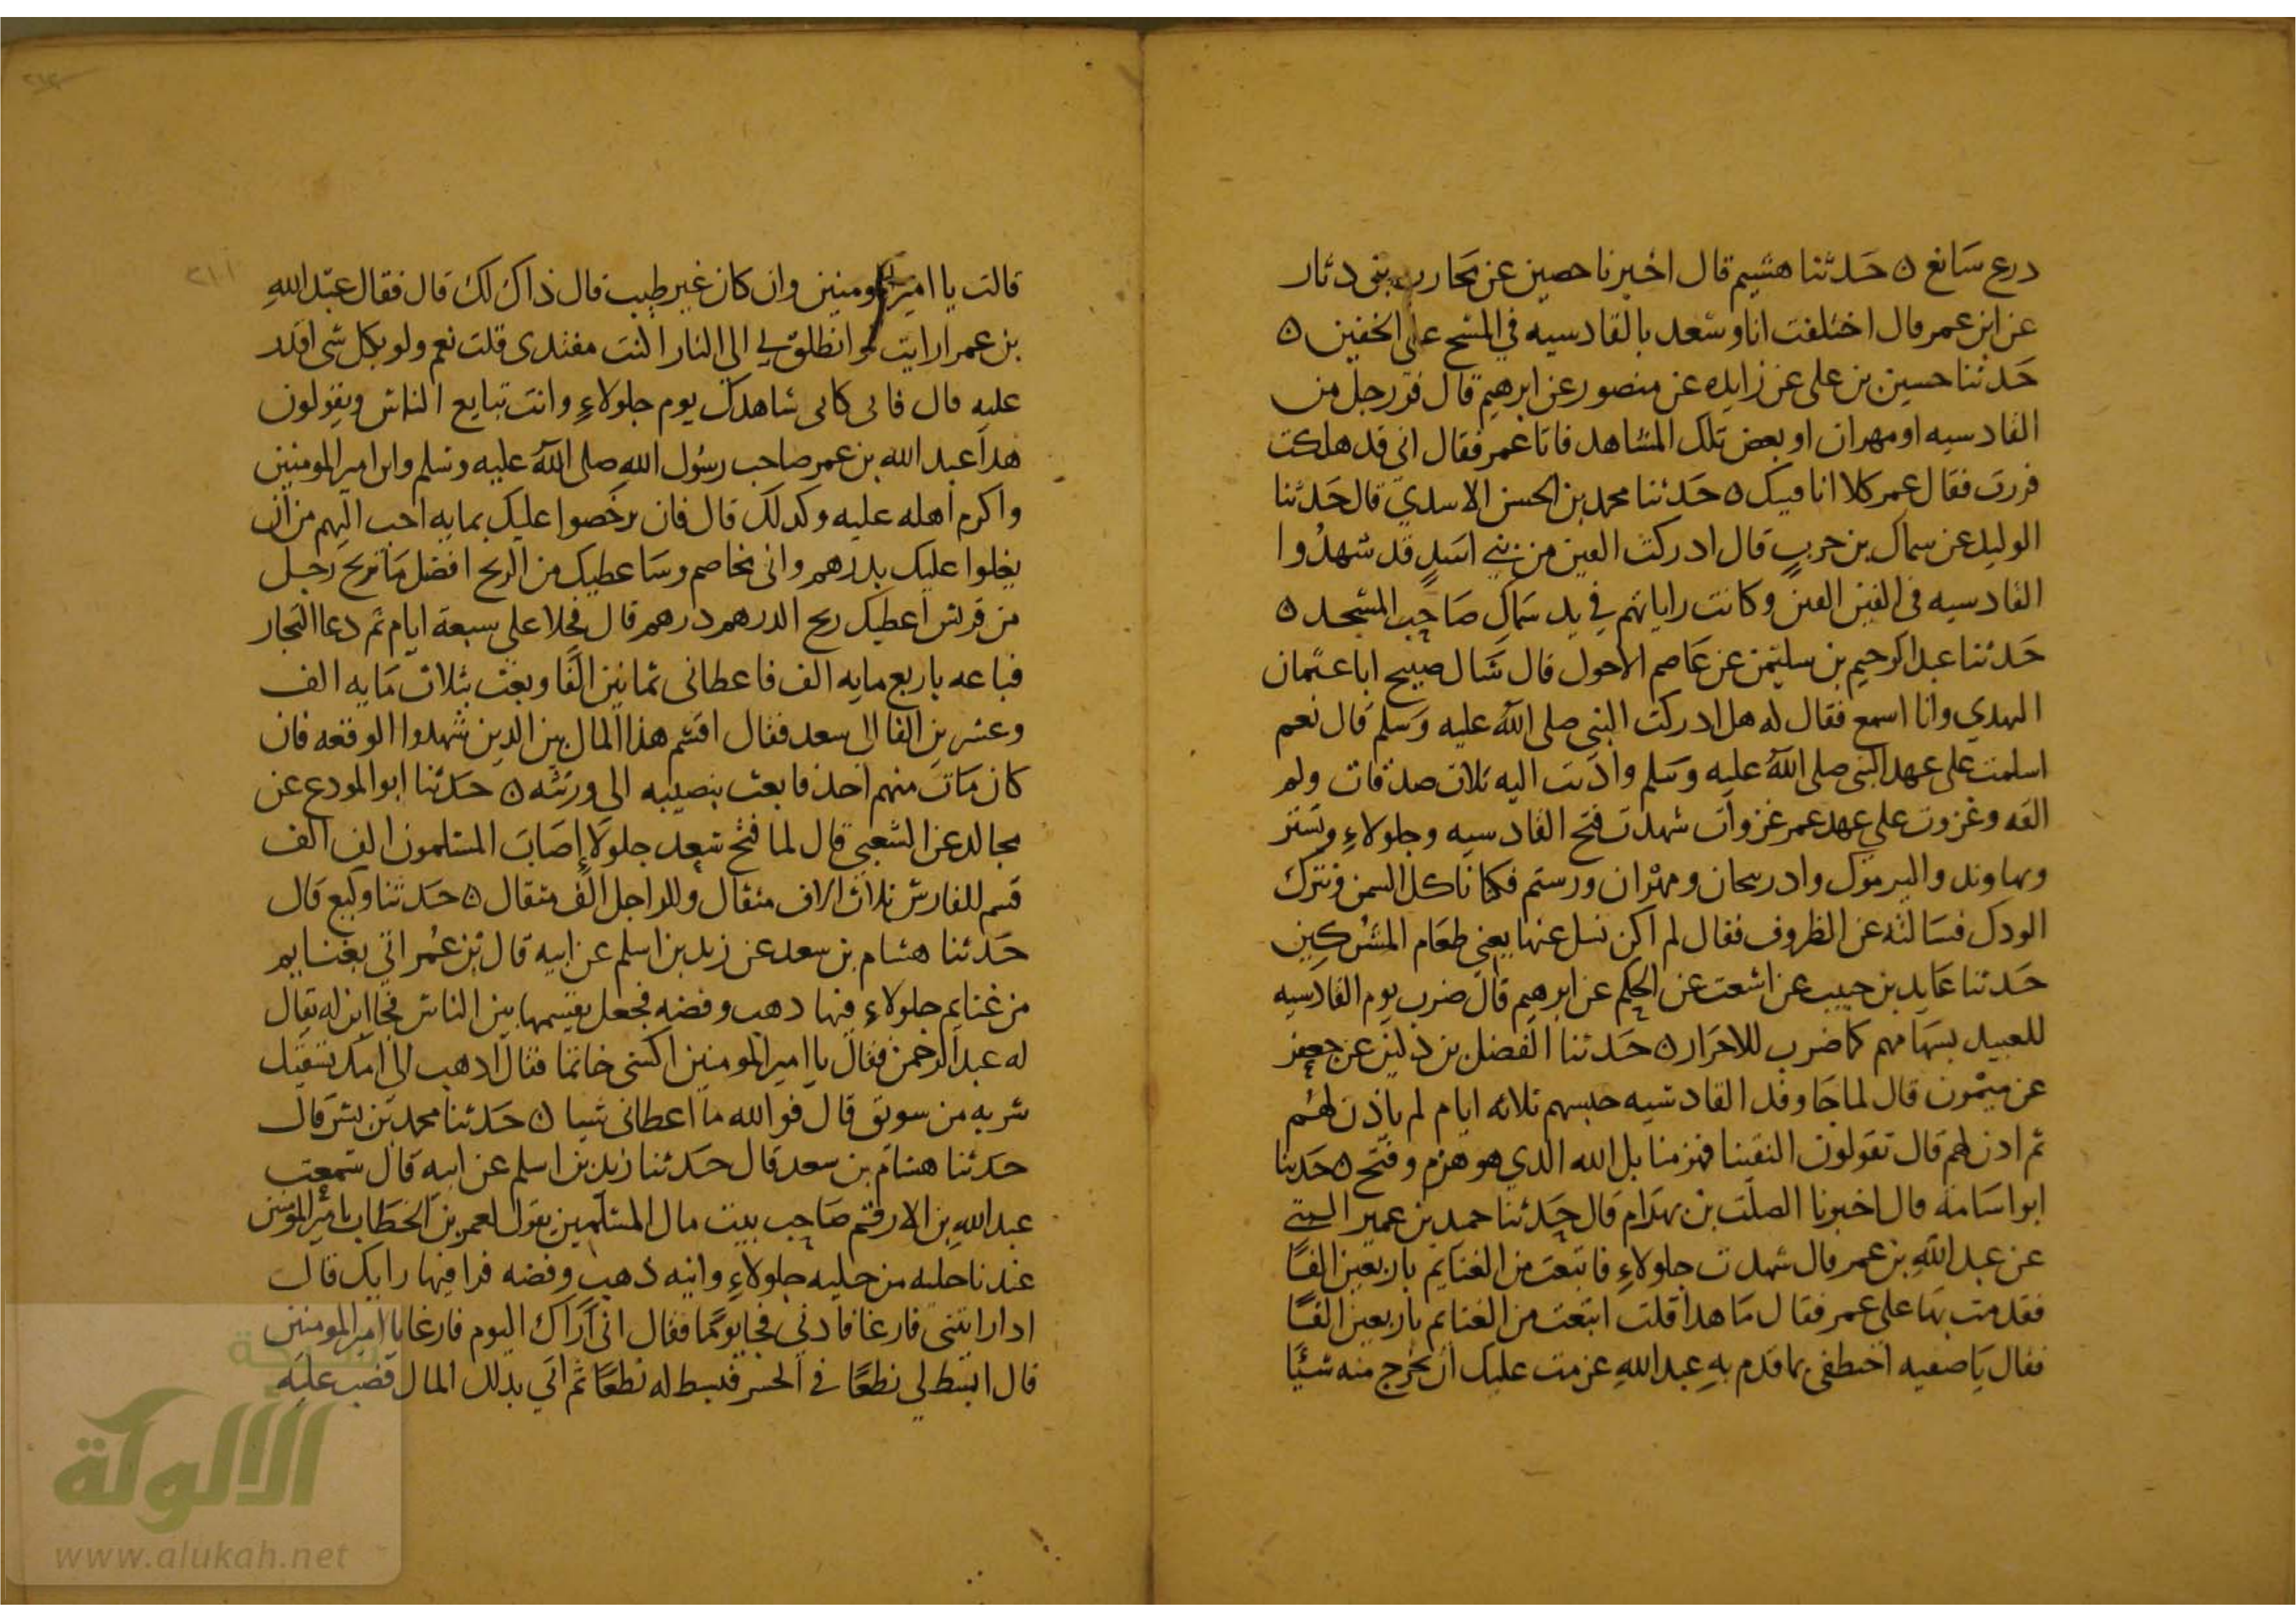 درع سابغ ه حدثنا هشيم قال اخبرنا حصين عن محارب بن دثار
عن ابن عمر قال اختلفت انا وسعد بالقادسيه في المسح على الخفين ه
حدثنا حسين بن على عن زايده عن منصور عن ابرهيم قال فر رجل من
القادسيه او مهران او بعض تلك المشاهد فاتا عمر فقال انى قد هلكت
فررت فقال عمر كلا انا فيك ه حدثنا محمد بن الحسن الاسدي قال حدثنا
الوليد عن سماك بن حرب قال ادركت الفين من بني اسد قد شهدوا
القادسيه فى الفين الفين وكانت راياتهم في يد سماك صاحب المسجد ه
حدثنا عبد الرحيم بن سليمن عن عاصم الاحول قال سال صبيح ابا عثمان
النهدي وانا اسمع فقال له هل ادركت النبى صلى الله عليه وسلم قال نعم
اسلمت على عهد النبى صلى الله عليه وسلم واديت اليه ثلاث صدقات ولم
القه وغزوت علي عهد عمر غزوات شهدت فتح القادسيه وجلولاء وتستر
ونهاوند واليرموك وادربيجان ومهران ورستم فكنا ناكل السمن ونترك
الودك فسالته عن الظروف فقال لم اكن نسل عنها يعني طعام المشركين
حدثنا عايد بن حبيب عن اشعث عن الحكم عن ابرهيم قال ضرب يوم القادسيه
للعبيد بسهامهم كما ضرب للاحرار ه حدثنا الفضل بن دكين عن جعفر
عن ميمون قال لما جا وفد القادسيه حبسهم ثلاثه ايام لم ياذن لهم
ثم ادن لهم قال تقولون التقينا فهزمنا بل الله الذي هو هزم وفتح ه حدثنا
ابو اسامه قال اخبرنا الصلت بن بهرام قال حدثنا جميع بن عمير الليتي
عن عبد الله بن عمر قال شهدت جلولاء فابتعت من الغنايم باربعين الفا
فقدمت بها على عمر فقال ما هدا قلت ابتعت من الغنايم باربعين الفا
فقال يا صفيه احتفظى بما قدم به عبد الله عزمت عليك ان تخرج منه شيئا
قالت يا امير المومنين وان كان غير طيب قال ذاك لك قال فقال عبد الله
بن عمر ارايت لو انطلق بي الى النار اكنت مفتدى قلت نعم ولو بكل شى اقدر
عليه قال فانى كانى شاهدك يوم جلولاء وانت تبايع الناس ويقولون
هدا عبد الله بن عمر صاحب رسول الله صلى الله عليه وسلم وابن امير المومنين
واكرم اهله عليه وكدلك قال فان يرخصوا عليك بمايه احب اليهم من ان
يغلوا عليك بدرهم وانى مخاصم وساعطيك من الربح افضل ما يربح رجل
من قريش اعطيك ربح الدرهم درهم قال فخلا على سبعة ايام ثم دعا التجار
فباعه باربع مايه الف فاعطانى ثمانين الفا وبعث بثلاث مايه الف
وعشرين الفا الى سعد فقال اقسم هذا المال بين الدين شهدوا الوقعه فان
كان مات منهم احد فابعث بنصيبه الى ورثته ه حدثنا ابو المودع عن
مجالد عن الشعبي قال لما فتح سعد جلولا اصاب المسلمون الف الف
قسم للفارس ثلاث الاف مثقال وللراجل الف مثقال ه حدثنا وكيع قال
حدثنا هشام بن سعد عن زيد بن اسلم عن ابيه قال بن عمر اتي بغنايم
من غنايم جلولاء فيها دهب وفضه فجعل يقسمها بين الناس فجا ابن له يقال
له عبد الرحمن فقال يا امير المومنين اكسنى خاتما فقال ادهب الى امك تسقيك
شربه من سويق قال فوالله ما اعطانى شيا ه حدثنا محمد بن بشر قال
حدثنا هشام بن سعد قال حدثنا زيد بن اسلم عن ابيه قال سمعت
عبد الله بن الارقم صاحب بيت مال المسلمين يقول لعمر بن الخطاب يا امير المومنين
عندنا حليه من حليه جلولاء وانيه ذهب وفضه فرا فيها رايك قال
ادا رايتنى فارغا فادني فجا يوما فقال انى اراك اليوم فارغا يا امير المومنين
قال ابسط لي نطعا في الحسر فبسط له نطعا ثم اتي بدلك المال فصب عليه
شبكة
الألوكة
www.alukah.net